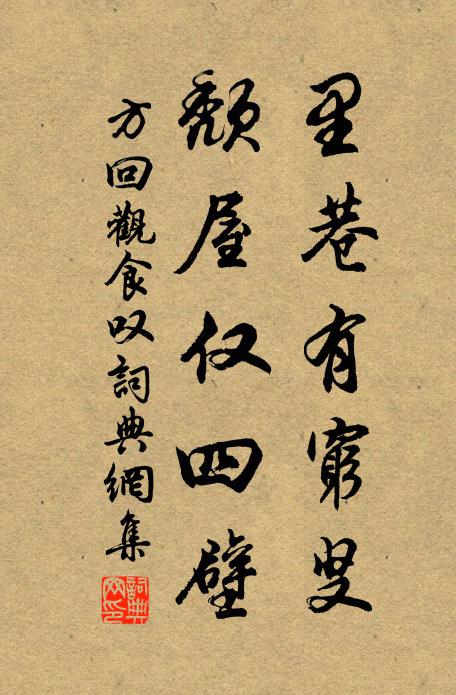 里巷有窮叟
頹屋仅四壁
方回觀食叹詞典網集